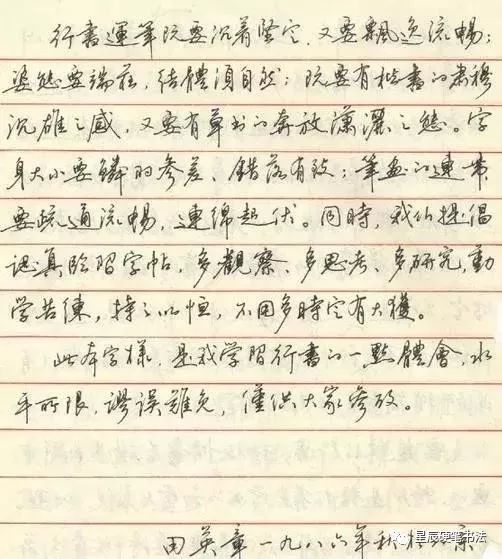 行書運筆既要沉着堅定，又要飄逸流暢；
姿態要端莊，結體須自然；既要有楷書的肅穆
沉雄之感，又要有草书的奔放瀟灑之態。字
身大小要鱗的參差，錯落有致；筆画的連帶
要疏通流暢，連綿起伏。同時，我们提倡
认真临習字帖，多觀察、多思考、多研究，勤
学苦練，持之以恒，不用多時定有大獲。
此本字樣，是我学習行書的一點體會，水
平所限，謬误難免，僅供大家參攷。
田英章一九八六年秋於北京
星辰硬笔书法